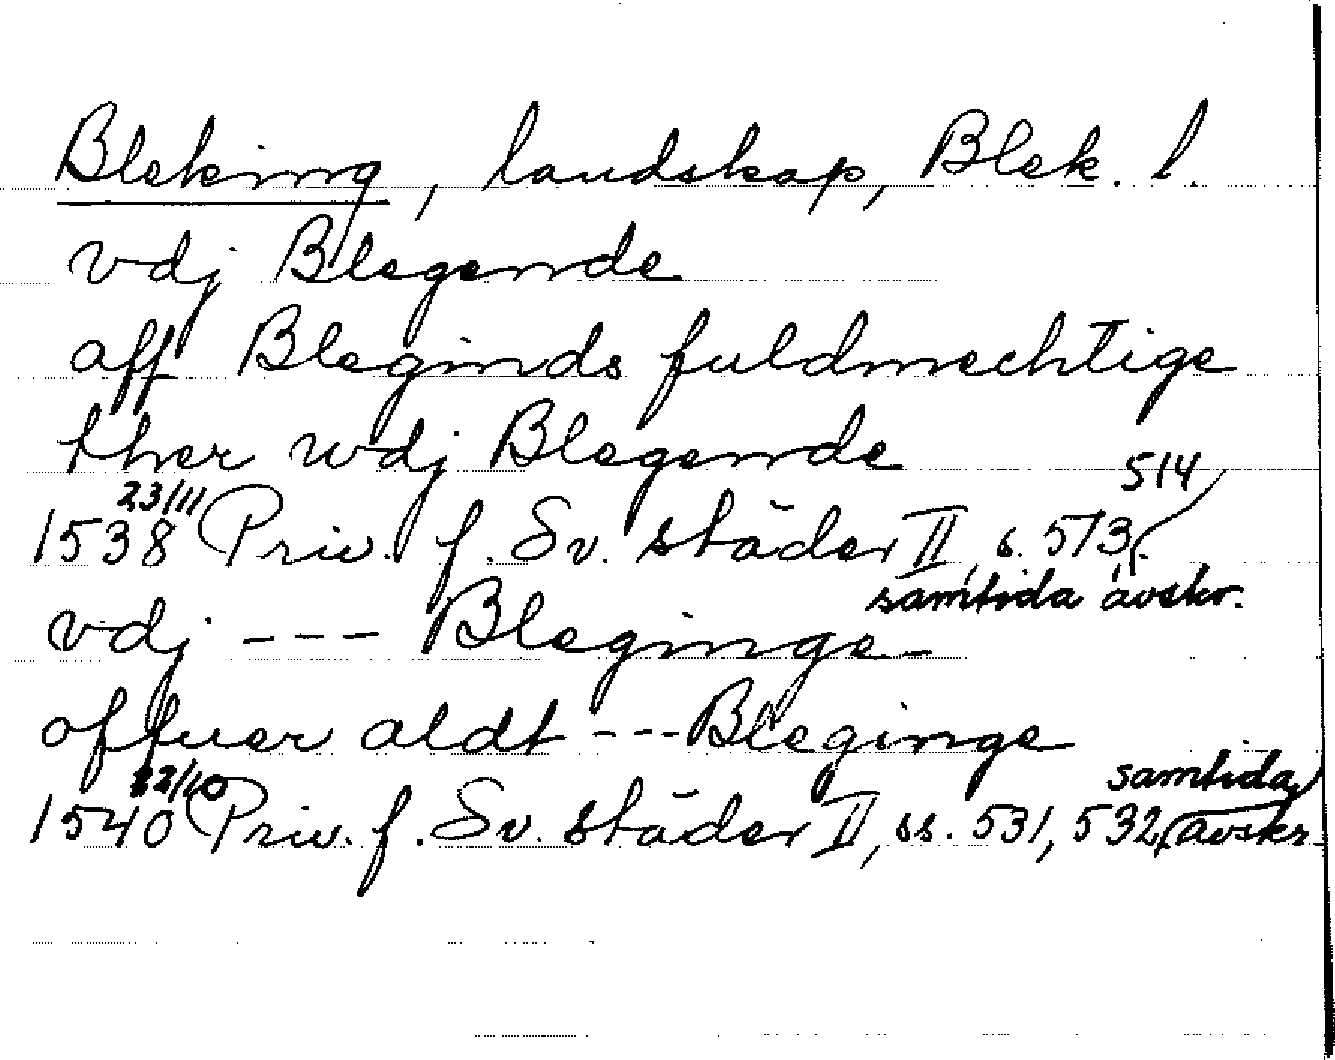 Bleking, landskap, Blek. l.
vdj Blegende
aff Bleginds fuldmechtige
ther wdj Blegende
514
23/11
1538 Priv. f. Sv. städer II, s. 513,
samtida avskr.
vdj --- Bleginge-
offuer aldt --- Bleginge
12/10 samtida
1540 Priv. f. Sv. städer II, ss. 531, 532, avskr.